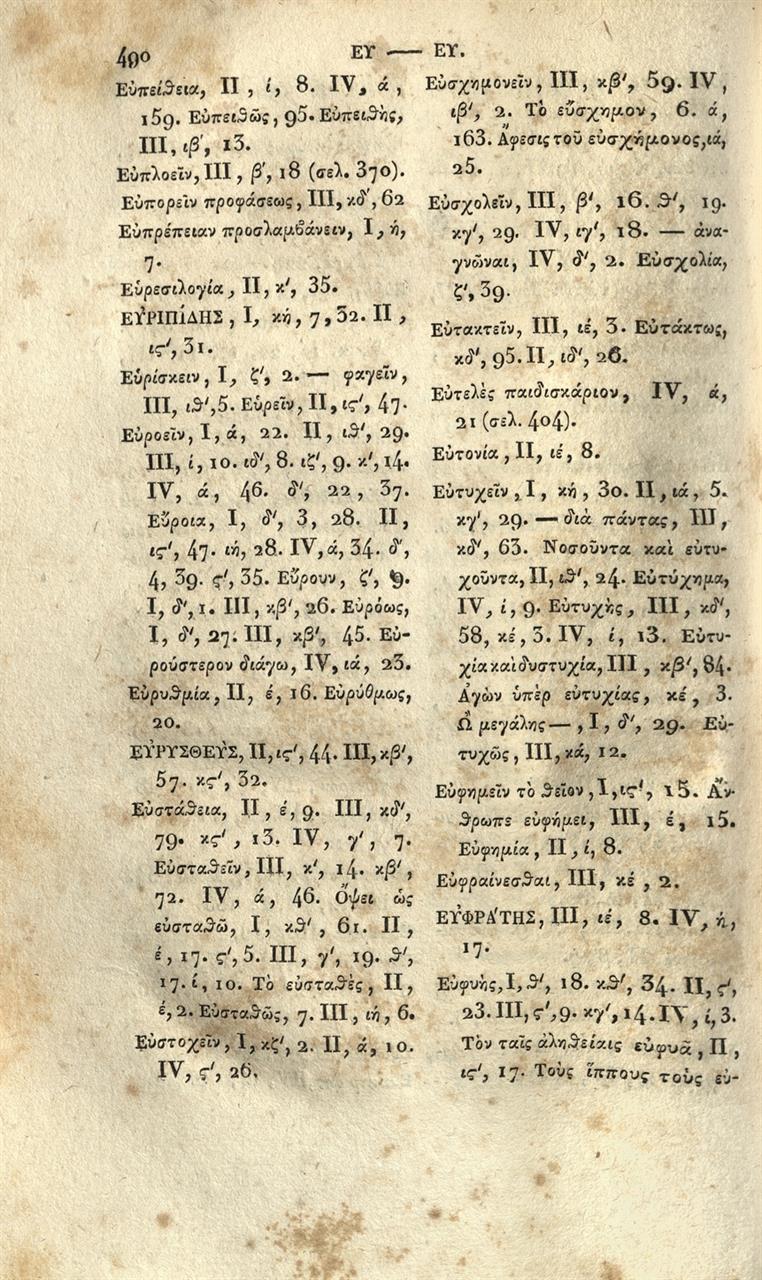 490
ΕΥ — ΕΥ.
Εὐπείθεια, II, ί, 8. IV, ά,
159. Εὐπειθῶς, 95. Εὐπειθὴς,
III, ιβ', 13.
Εὐπλοεῖν, III, β', 18 (σελ. 370).
Εὐπορεῖν προφάσεως, III, κδ', 62
Εὐπρέπειαν προσλαμβάνειν, I, ή,
7.
Εὑρεσιλογία, II, κ', 35.
ΕΥ̓ΡΙΠΊΔΗΣ, I, κή, 7, 32. II,
ις', 31.
Εὑρίσκειν, I, ζ', 2. — φαγεῖν,
III, ιθ', 5. Εὑρεῖν, II, ις', 47.
Εὐροεῖν, I, ά, 22. II, ιθ', 29.
III, ί, 10. ιδ', 8. ιζ', 9. κ', 14.
IV, ά, 46. δ', 22, 37.
Εὔροια, I, δ', 3, 28. II,
ις', 47. ιή, 28. IV, ά, 34. δ',
4, 39. ς', 35. Εὔρουν, ζ', 9.
I, δ', 1. III, κβ', 26. Εὐρόως,
I, δ', 27. III, κβ', 45. Εὐ-
ρούστερον διάγω, IV, ιά, 23.
Εὐρυθμία, II, έ, 16. Εὐρύθμως,
20.
ΕΥ̓ΡΥΣΘΕῪΣ, II, ις', 44. III, κβ',
57. κς', 32.
Εὐστάθεια, II, έ, 9. III, κδ',
79. κς', 13. IV, γ', 7.
Εὐσταθεῖν, III, κ', 14. κβ',
72. IV, ά, 46. Ὄψει ὡς
εὐσταθῶ, I, κθ', 61. II,
έ, 17. ς', 5. III, γ', 19. θ',
17. ί, 10. Τὸ εὐσταθὲς, II,
έ, 2. Εὐσταθῶς, 7. III, ιή, 6.
Εὐστοχεῖν, I, κζ', 2. II, ά, 10.
IV, ς', 26.
Εὐσχημονεῖν, III, κβ', 59. IV,
ιβ', 2. Τὸ εὔσχημον, 6. ά,
163. Ἄφεσις τοῦ εὐσχήμονος, ιά,
25.
Εὐσχολεῖν, III, β', 16. θ', 19.
κγ', 29. IV, ιγ', 18. — ἀνα-
γνῶναι, IV, δ', 2. Εὐσχολία,
ζ', 39.
Εὐτακτεῖν, III, ιέ, 3. Εὐτάκτως,
κδ', 95. II, ιδ', 26.
Εὐτελὲς παιδισκάριον, IV, ά,
21 (σελ. 404).
Εὐτονία, II, ιέ, 8.
Εὐτυχεῖν, I, κή, 30. II, ιά, 5.
κγ', 29. — διὰ πάντας, III,
κδ', 63. Νοσοῦντα καὶ εὐτυ-
χοῦντα, II, ιθ', 24. Εὐτύχημα,
IV, ί, 9. Εὐτυχὴς, III, κδ',
58, κέ, 3. IV, ί, 13. Εὐτυ-
χία καὶ δυστυχία, III, κβ', 84.
Ἀγὼν ὑπὲρ εὐτυχίας, κέ, 3.
Ὢ μεγάλης —, I, δ', 29. Εὐ-
τυχῶς, III, κά, 12.
Εὐφημεῖν τὸ θεῖον, I, ις', 15. Ἄν-
θρωπε εὐφήμει, III, έ, 15.
Εὐφημία, II, ί, 8.
Εὐφραίνεσθαι, III, κέ, 2.
ΕΥ̓ΦΡΆΤΗΣ, III, ιέ, 8. IV, ή,
17.
Εὐφυὴς, I, θ', 18. κθ', 34. II, ς',
23. III, ς', 9. κγ', 14. IV, ί, 3.
Τὸν ταῖς ἀληθείαις εὐφυᾶ, II,
ις', 17. Τοὺς ἵππους τοὺς εὐ-